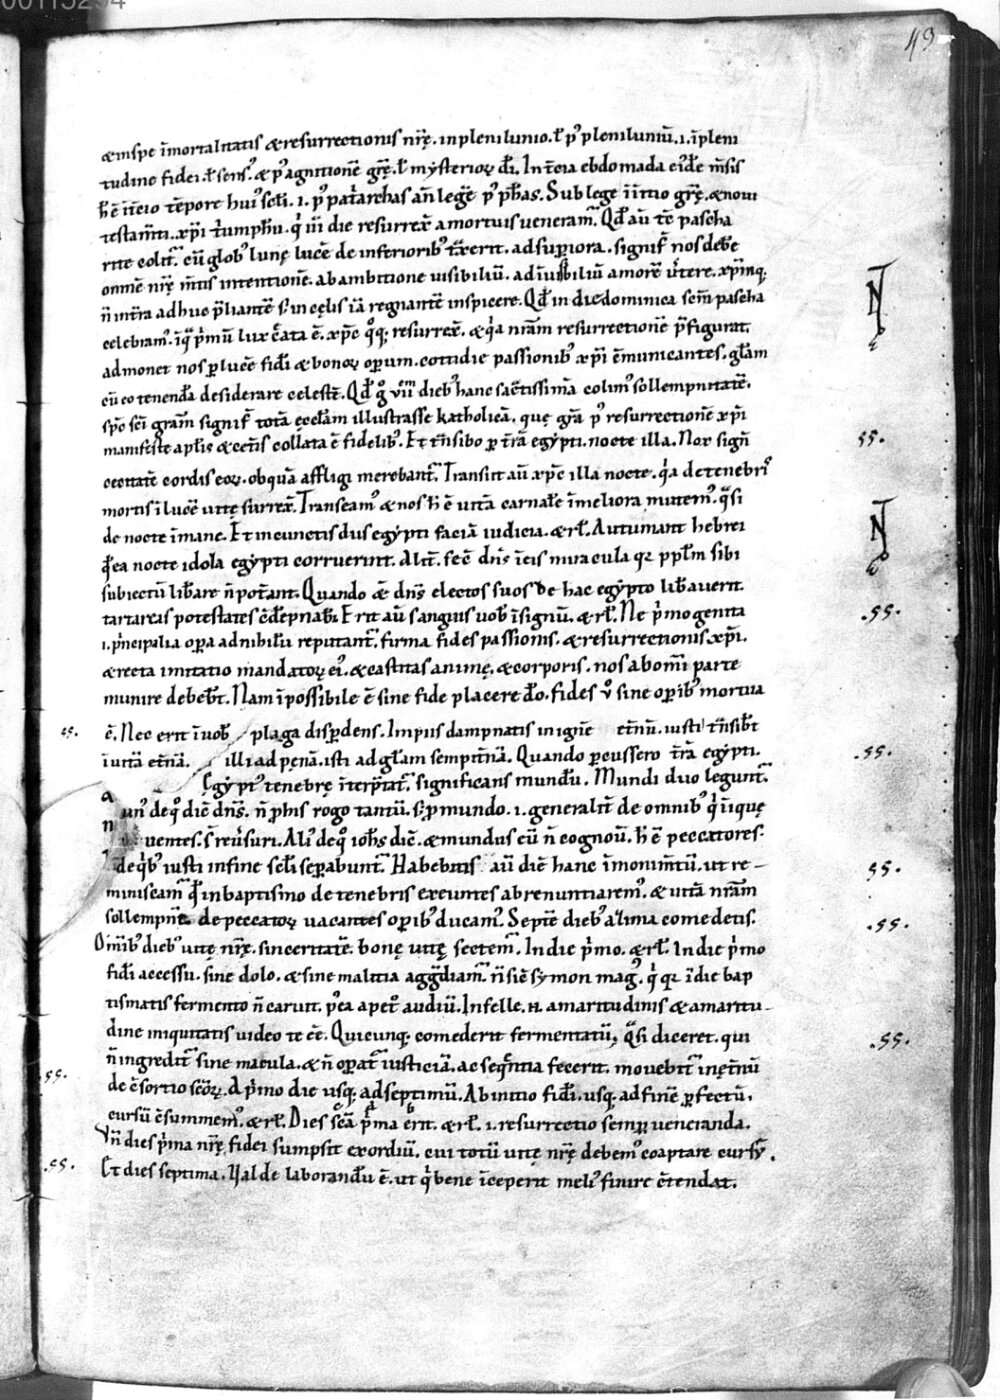 00113294
49
& in spe īmortalitatis & resurrectionis nr̄ę. in plenilunio. ł p' pleniluniū. .i. īpleni
tudine fidei. ł sens'. & p' agnitionē gr̄ę. ł mysteriorꝝ dī. In t̄cia ebdomada eiꝰdē m̄sis
h̄ ē īt̄cio tēpore hui' scl̄i. .i. p' patͥarchas an̄ legē p' ꝓph̄as. Sub lege īitio gr̄ę. & noui
testam̄ti. xp̄i tͥumphū. qͥ iii die resurrex̄ a mortuis veneram̄. Qd̄ aū tē pascha
rite colit̄. cū glob' lunę lucē de inferiorib' tͣxerit. ad superiora. signif̄ nos deb̄e
omnē nr̄ę m̄tis intentionē. ab ambitione uisibiliū. ad īuisibiliū amorē ūtere. xp̄mq;
n̄ intͣa adhuc p̄liantē s; in cęlis iā regnantē inspicere. Qd̄ in die dominica sem̄ pascha
celebram̄. ī qͣ pͥmū lux c̄ata ē. xp̄c qͦq; resurrex̄. & qͥa nr̄am resurrectionē p̄figurat.
admonet nos p̱ lucē fidī & bonoꝝ operum. cottidie passionib' xp̄i c̄municantes. gl̄am
cū eo tenend̄a desiderare celestē. Qd̄ gͦ viii dieb' hanc sac̄tissimā colim' sollempnitatē.
sp̄c sc̄i gram̄ signif̄ totā ęccl̄am illustrasse katholicā. quę gr̄a p' resurrectionē xp̄i
manifeste apl̄is & cet̄is collata ē fidelib'. Et t̄nsibo per t̄rā egypti. nocte illa. Nox sign̄
cecitatē cordis eoꝝ. ob quā affligi merebant̄. Transiit aū xp̄c illa nocte. qͥa de tenebrͥs
mortis ī lucē uitę surrex̄. Transeam' & nos h̄ ē uitā carnalē ī meliora mutem'. qͣsi
de nocte ī mane. Et in cunctis diis egypti faciā iudicia. & rł. Autumant hebrei
qd̄ ea nocte idola egypti corruerint. Alit̄. fec̄ dn̄s ī eis miracula qꝛ pp̄lm sibi
subiectū lib̄are n̄ pot̄ant. Quando & dn̄s electos suos de hac egypto lib̄auerit
tartareas potestates c̄dēpnab̄. Erit aū sanguis uob' ī signū. & rł. Ne pͥmogenita
.i. pͥncipalia opera ad nihilū reputant̄. firma fides passionis. & resurrectionis xp̄i.
& recta imitatio mandatoꝝ ei'. & castitas animę. & corporis. nos ab om̄i parte
munire debebt̄. Nam ī possibile ē sine fide placere do͞. fides v̊ sine op̱ib' mortua
ē. Nec erit ī uob' plaga disp̱dens. Impiis dampnatis in ignē et̄nū. iusti t̄nsibt̄
ī uitā et̄nā. illi ad pęnā. isti ad gl̄am sempit̄nā. Quando percussero t̄rā egypti.
Egypt' tenebrę īterp̄tat̄. significans mundū. Mundi duo legunt̄.
un' de qͦ dic̄ dn̄s. n̄ ꝓ his rogo tantū. s; ꝓ mundo. .i. generalit̄ de omnib' qͥ ī iquę
ventes. s̄ reūsuri. Ali' de qͦ ioh̄s dic̄. & mundus eū n̄ cognou̅. h̄ ē peccatores.
de qͥb' iusti in fine scl̄i sep̱abunt̄. Habebitis aū diē hanc ī monim̄tū. ut re-
miniscam̄ qd̄ in baptismo de tenebris exeuntes abrenuntiarem'. & uitā nr̄am
sollempnē. de peccatoꝝ uacantes op̱ib' ducam'. Septē dieb' azima comedetis.
Omīb' dieb' uitę nr̄ę. sinceritatē. bonę uitę sectem̄. In die pͥmo. & rł. In die pͥmo
fidī accessu. sine dolo. & sine malitia aggͣdiam̄. n̄ sic̄ symon mag'. qͥ qꝛ ī die bap
tismatis fermento n̄ caruit. p̱ea a petͦ audiū. In felle .n. amaritudinis & amaritu-
dine iniquitatis uideo te ēē. Quicunq; comederit fermentatū. qͣsi diceret. qui
n̄ ingredit̄ sine macula. & n̄ operat̄ iusticiā. ac seqͣntia fecerit. movebit̄ in ęt̄nū
de c̄sortio sc̄oꝝ. A pͥmo die usq; ad septimū. Ab initio fidī. usq; ad finē perfectū.
cursū c̄summem'. & rł. Dies sc̄a pͥma erit. & rł. .i. resurrectio semp̱ ueneranda.
Un̄ dies pͥma nr̄ę fidei sumpsit exordiū. cui totū uitę nr̄ę debem' coaptare cursū.
Et dies septima. Valde laborandū ē. ut qͥ bene īceperit meli' finire c̄tendat.